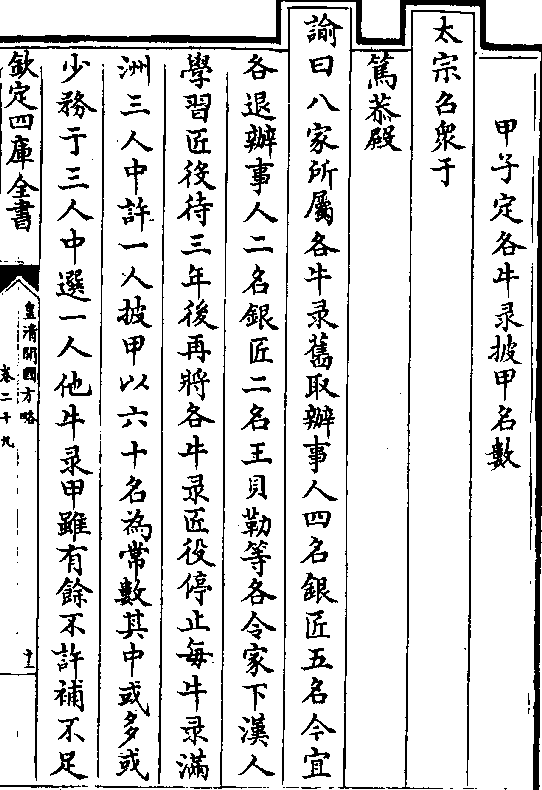 甲子定各牛录披甲名數
太宗召衆于
篤恭殿
諭曰八家所屬各牛录舊取辦事人四名銀匠五名今宜
各退辦事人二名銀匠二名王貝勒等各令家下漢人
學習匠役待三年後再將各牛录匠役停止每牛录滿
洲三人中許一人披甲以六十名為常數其中或多或
少務于三人中選一人他牛录甲雖有餘不許補不足
欽定四庫全書
皇清開國方略
卷二十九
十三